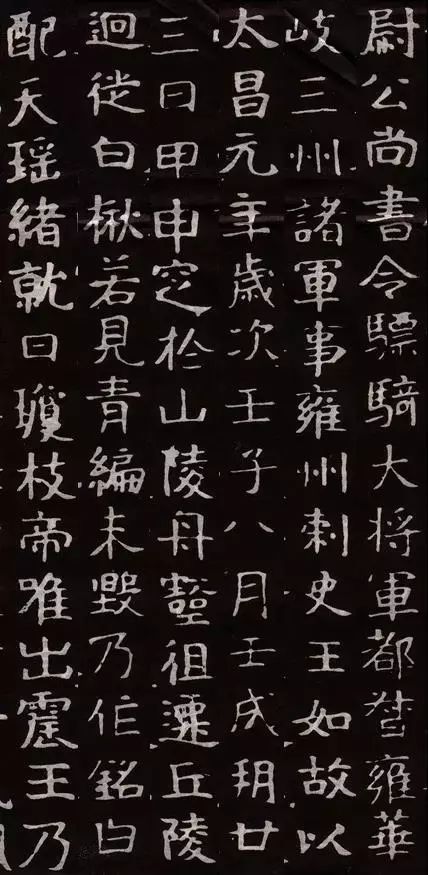 尉公尚書令驃騎大将軍都督雍華
岐三州諸軍事雍州刺史王如故以
太昌元年歲次壬子八月壬戌朔廿
三日甲申窆於山陵丹壑徂遷丘陵
迴徙白楸若見青編未毀乃作銘曰
配天瑶緒就日瓊枝帝唯出震王乃